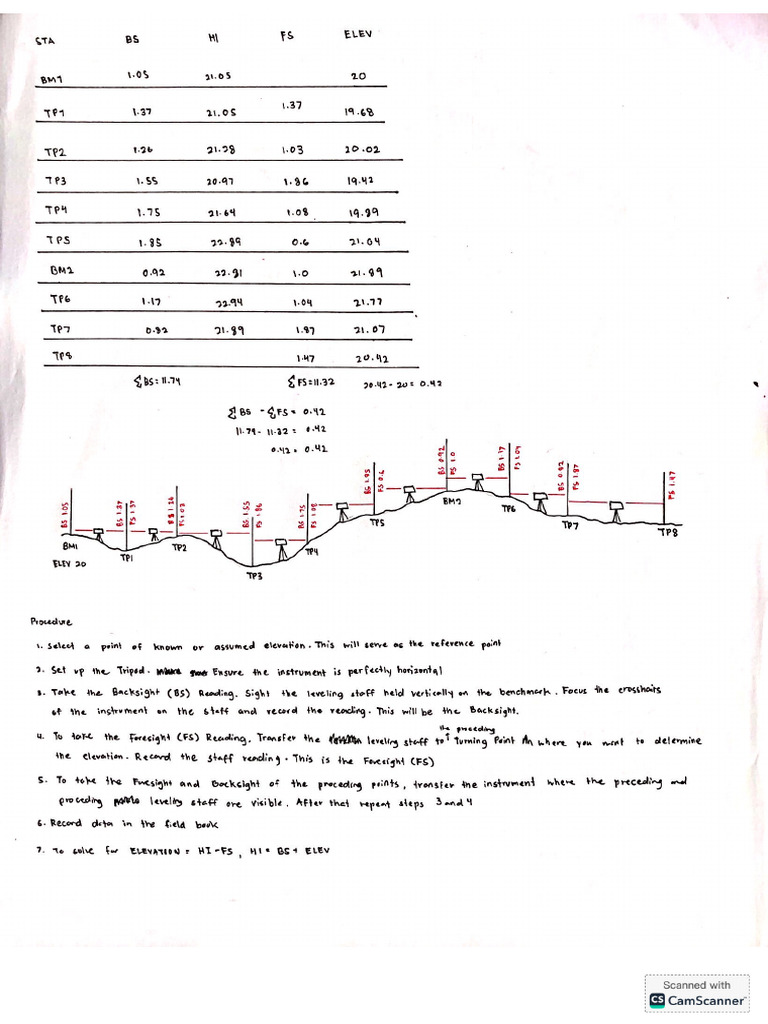 STA BS HI FS ELEV
BM1 1.05 21.05 20
TP1 1.37 21.05 1.37 19.68
TP2 1.26 21.28 1.03 20.02
TP3 1.55 20.97 1.86 19.42
TP4 1.75 21.64 1.08 19.89
TP5 1.85 22.89 0.6 21.04
BM2 0.92 22.81 1.0 21.89
TP6 1.17 22.94 1.04 21.77
TP7 0.82 21.89 1.87 21.07
TP8 1.47 20.42
ΣBS = 11.74 ΣFS = 11.32 20.42 - 20 = 0.42
ΣBS - ΣFS = 0.42
11.74 - 11.32 = 0.42
0.42 = 0.42
BS 1.05
BS 1.37
FS 1.37
BS 1.26
FS 1.03
BS 1.55
FS 1.86
BS 1.75
FS 1.08
FS 0.6
BS 0.92
FS 1.0
BS 1.17
FS 1.04
FS 1.87
FS 1.47
BM1
TP1
TP2
TP3
TP4
TP5
BM2
TP6
TP7
TP8
ELEV 20
Procedure
1. Select a point of known or assumed elevation. This will serve as the reference point
2. Set up the Tripod. Ensure the instrument is perfectly horizontal
3. Take the Backsight (BS) Reading. Sight the leveling staff held vertically on the benchmark. Focus the crosshairs
of the instrument on the staff and record the reading. This will be the Backsight.
4. To take the Foresight (FS) Reading. Transfer the leveling staff to the preceding Turning Point where you want to determine
the elevation. Record the staff reading. This is the Foresight (FS)
5. To take the Foresight and Backsight of the proceding points, transfer the instrument where the preceding and
proceding leveling staff are visible. After that repeat steps 3 and 4
6. Record data in the field book
7. To solve for ELEVATION = HI - FS, HI = BS + ELEV
Scanned with
CS CamScanner